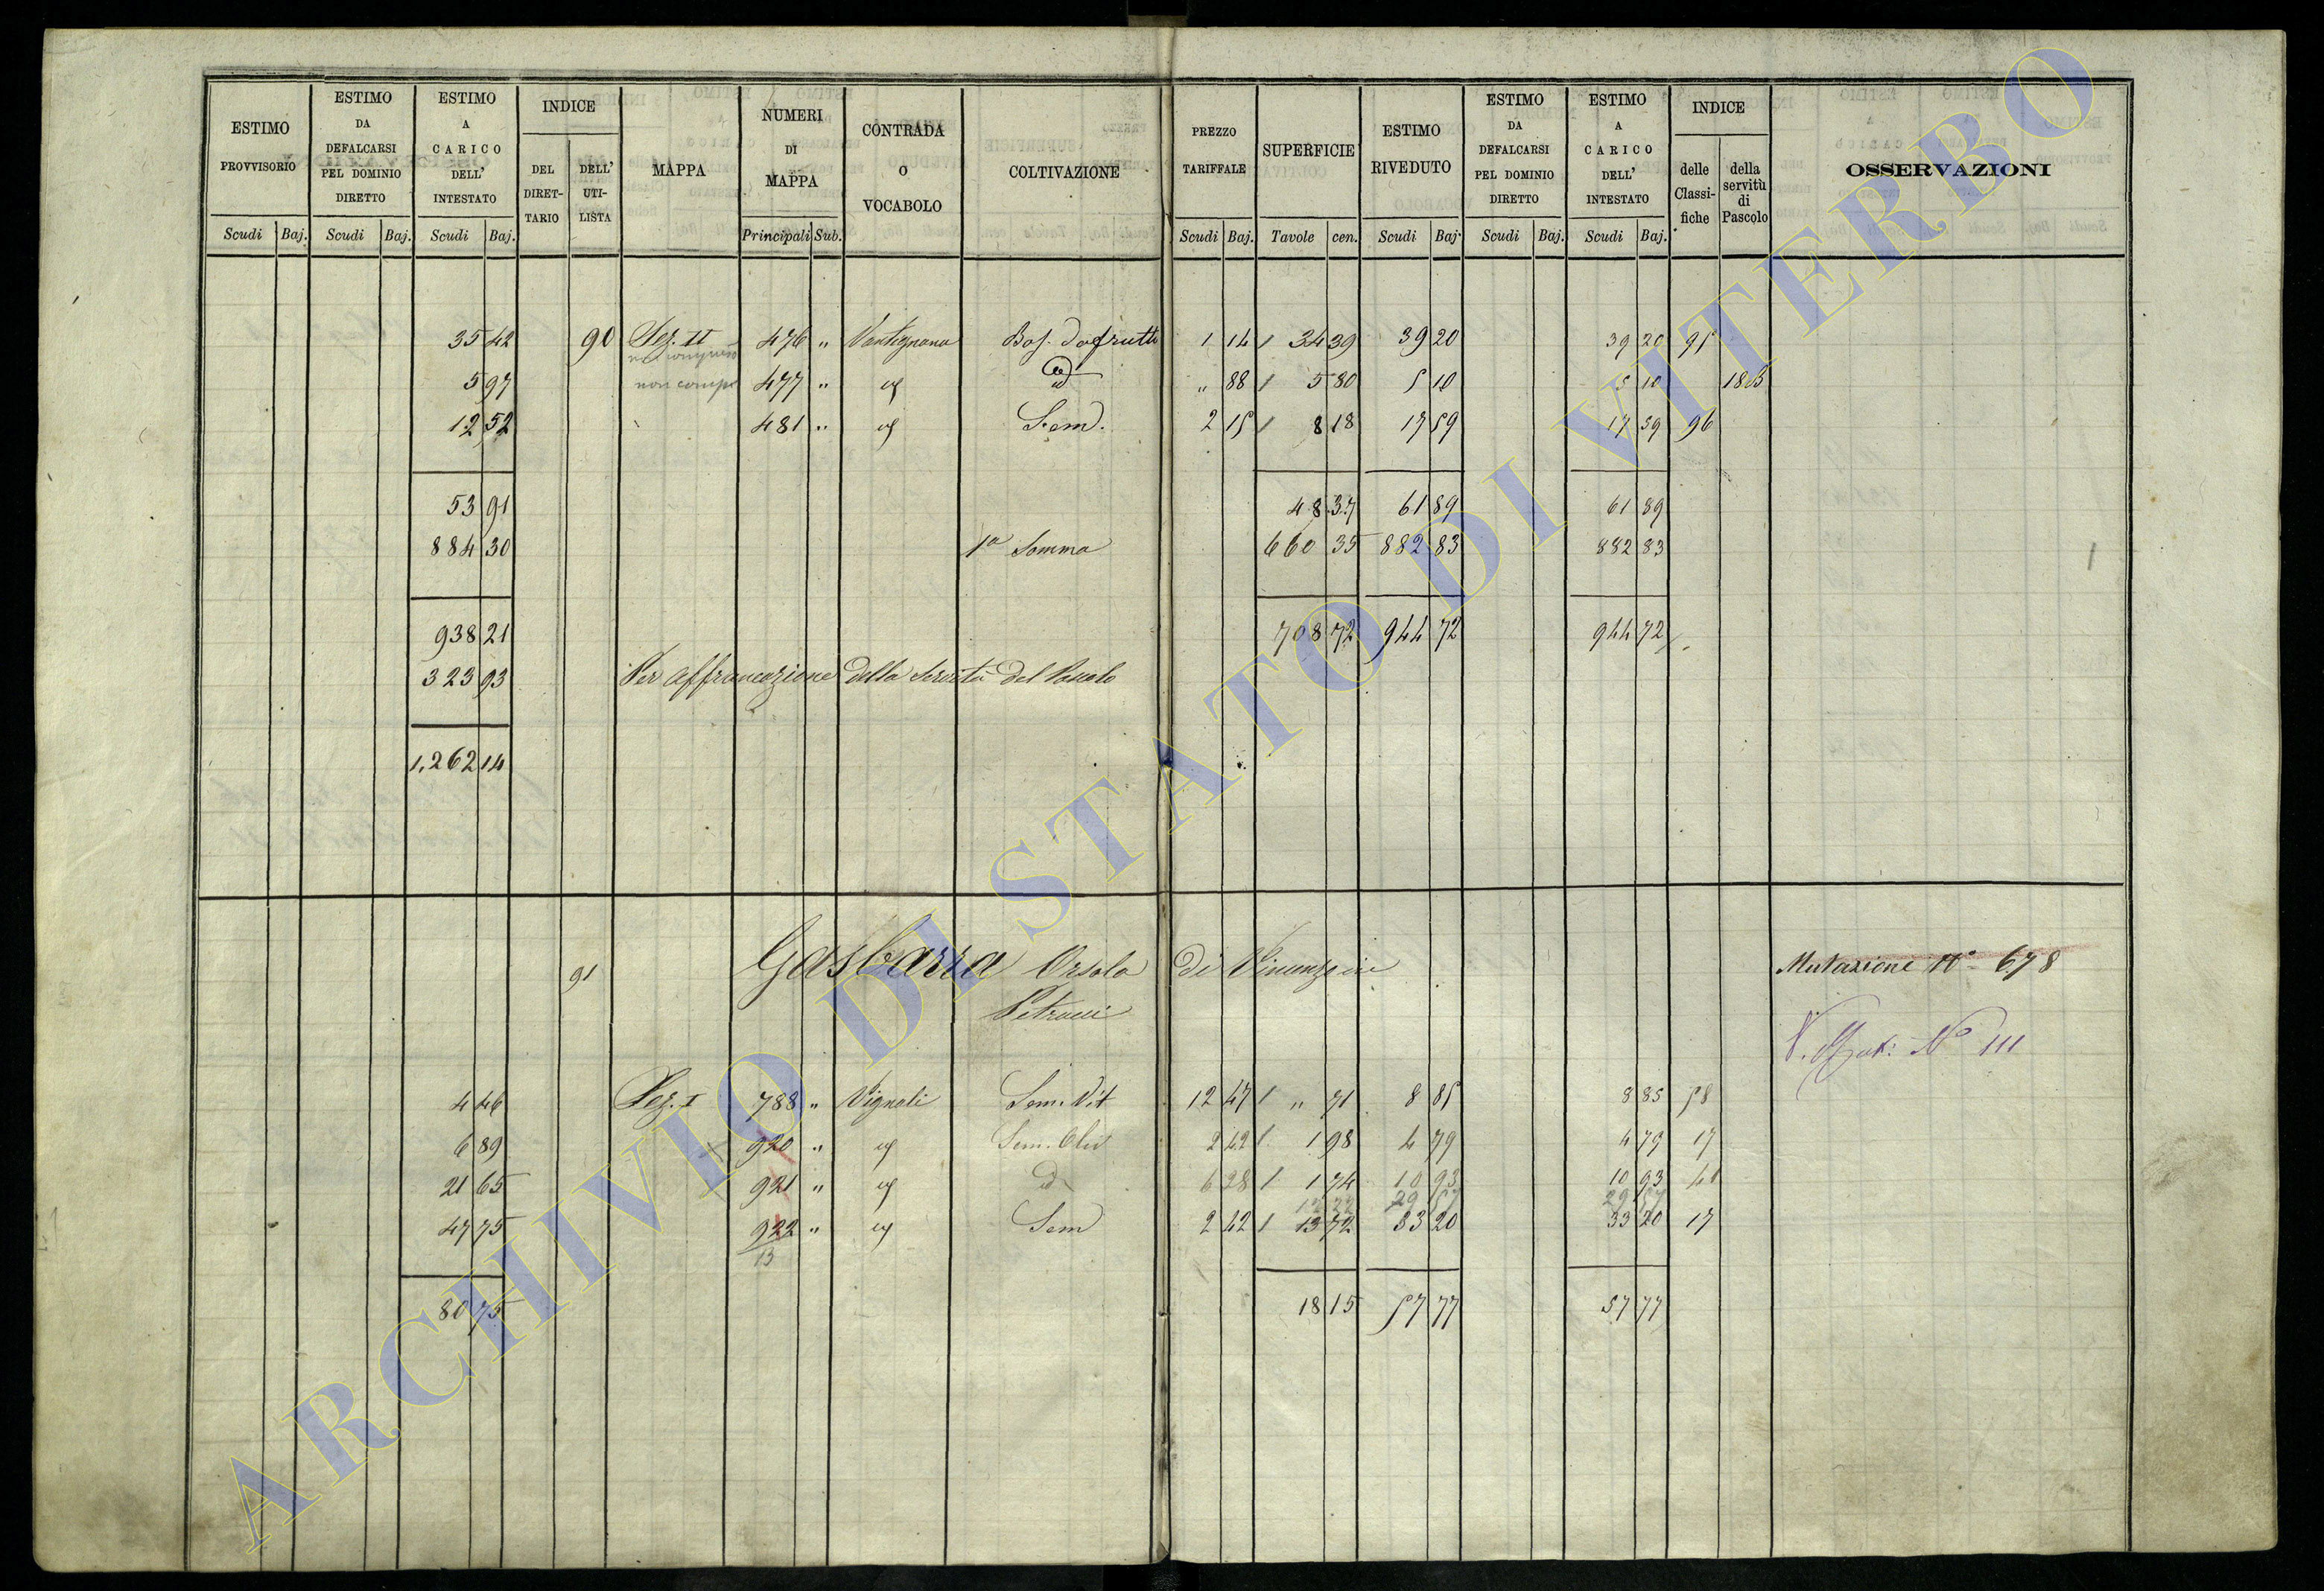 ESTIMO PROVVISORIO
ESTIMO DA DEFALCARSI PEL DOMINIO DIRETTO
ESTIMO A CARICO DELL' INTESTATO
INDICE
DEL DIRET- TARIO
DELL' UTI- LISTA
MAPPA
NUMERI DI MAPPA
CONTRADA O VOCABOLO
COLTIVAZIONE
PREZZO TARIFFALE
SUPERFICIE
ESTIMO RIVEDUTO
ESTIMO DA DEFALCARSI PEL DOMINIO DIRETTO
ESTIMO A CARICO DELL' INTESTATO
INDICE
delle Classi- fiche
della servitù di Pascolo
OSSERVAZIONI
Scudi Baj. Scudi Baj. Scudi Baj. Principali Sub. Scudi Baj. Tavole cen. Scudi Baj. Scudi Baj. Scudi Baj.
35 42 90 Sez. II 476 " Bos. da frutto 1 14 / 34 39 39 20 39 20 95
non compreso
5 97 non comp 477 " id " 88 / 5 80 5 10 5 10
12 52 481 " Sem. 2 15 / 8 18 17 59 17 59 96
53 91 48 37 61 89 61 89
884 30 1a Somma 660 35 882 83 882 83
938 21 708 72 944 72 944 72
323 93 Per affrancazione della Servitù del Pascolo
1,262 14
91 Gasbarra Orsola di Vincenzo in Mutazione No 678
Petrucci
V. Mut: No 111
4 46 Sez. I 788 " Vignali Sem. Vit 12 47 / " 71 8 85 8 85 58
6 89 920 " Sem. Oliv 2 42 / 1 98 4 79 4 79 17
21 65 921 " id 6 28 / 1 74 10 93 10 93 41
29 57 29 57
47 75 922 " Sem 2 42 / 13 72 33 20 33 20 17
13
80 75 18 15 57 77 57 77
ARCHIVIO DI STATO DI VITERBO